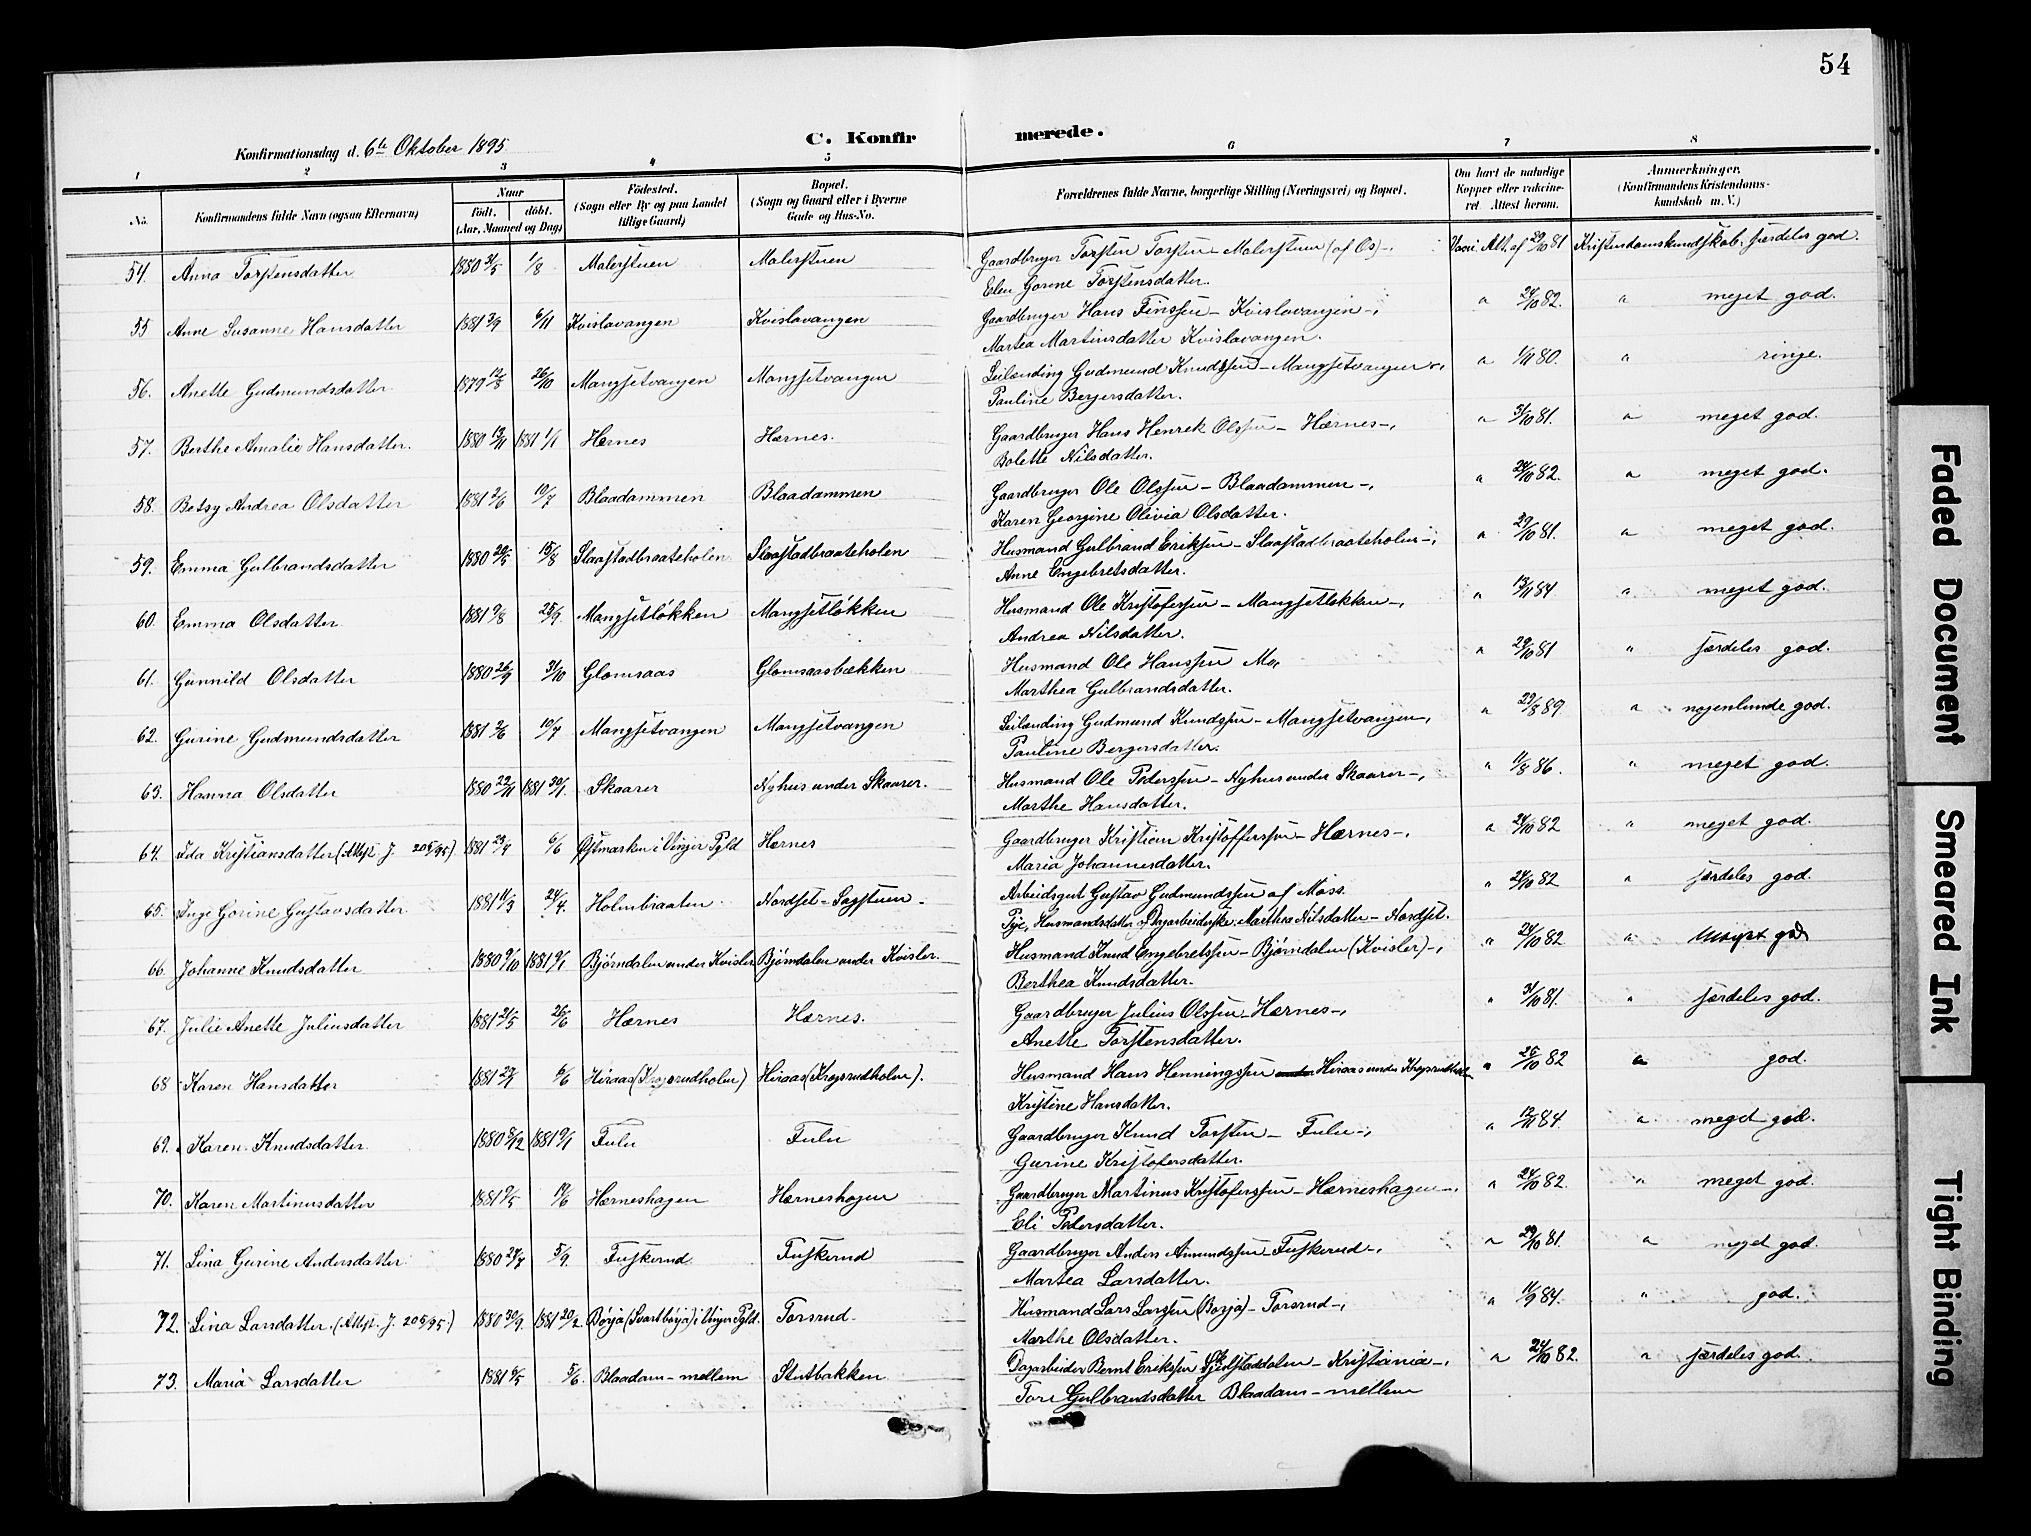 54
C. Konfirmerede.
Konfirmationsdag d. 6te Oktober 1895
1 2 3 4 5 6 7 8
No.
Konfirmandens fulde Navn (ogsaa Efternavn)
Naar
født. døbt.
(Aar, Maaned og Dag)
Fødested.
(Sogn eller By og paa Landet tillige Gaard)
Bopæl.
(Sogn og Gaard eller i Byerne Gade og Hus-No.
Forældrenes fulde Navne, borgerlige Stilling (Næringsvei) og Bopæl.
Om havt de naturlige Kopper eller vakcineret. Attest herom.
Anmærkninger.
(Konfirmandens Kristendomskundskab m. V.)
54. Anna Torstensdatter 1880 31/5 1/8 Malerstuen Malerstuen Gaardbruger Torsten Torstens. Malerstuen (af Os) -, Vacc. Att. af 29/10 81 Kristendomskundskab: særdeles god.
Elen Gorine Torstensdatter.
55 Anne Susanne Hansdatter 1881 3/9 6/11 Kvislavangen Kvislavangen Gaardbruger Hans Finssen - Kvislavangen -, " 24/10 82. " meget god.
Martea Martinsdatter Kvislavangen.
56. Anette Gudmundsdatter 1879 12/8 26/10 Mangsetvangen Mangsetvangen Leilending Gudmund Knudssen - Mangsetvangen -, " 1/11 80. " ringe.
Pauline Bergersdatter.
57. Berthe Amalie Hansdatter. 1880 13/11 1881 1/1 Hernes Hernes. Gaardbruger Hans Henrek Olssen - Hernes -, " 31/10 81. " meget god.
Bolette Nilsdatter.
58. Betsy Andrea Olsdatter 1881 2/6 10/7 Blaadammen Blaadammen Gaardbruger Ole Olssen - Blaadammen -, " 24/10 82. " meget god.
Karen Georgine Olivia Olsdatter.
59. Emma Gulbrandsdatter 1880 20/5 15/8 Slaastadbraateholen Slaastadbraateholen Husmand Gulbrand Eriksen - Slaastadbraateholen -, " 29/10 81. " meget god.
Anne Engebretsdatter.
60. Emma Olsdatter 1881 9/8 25/9. Mangsetløkken Mangsetløkken Husmand Ole Kristofersen - Mangsetløkken -, " 13/11 84. " meget god.
Andrea Nilsdatter.
61. Gunnild Olsdatter 1880 26/9 31/10 Glomsaas Glomsaasbækken Husmand Ole Hanssen Mo, " 29/10 81 " særdeles god.
Marthea Gulbrandsdatter.
62. Gurine Gudmundsdatter 1881 2/6 10/7 Mangsetvangen Mangsetvangen Leilending Gudmund Knudssen - Mangsetvangen -, " 29/8 89. " nogenlunde god.
Pauline Bergersdatter.
63. Hanna Olsdatter 1880 22/11 1881 30/1. Skaarer Nyhus under Skaarer. Husmand Ole Pederssen - Nyhus under Skaarer -, " 1/8 86. " meget god.
Marthe Hansdatter.
64. Ida Kristiansdatter (Attest J. 205/95) 1881 23/4 6/6 Østmarken i Vinger Pgld Hernes Gaardbruger Kristian Kristofferssen - Hernes -, " 24/10 82 " meget god.
Maria Johannesdatter.
65. Inge Gorine Gustavsdatter 1881 11/3 24/4. Holmbraaten Nordset - Sagstuen - Arbeidsgut Gustav Gudmundssen af Moss. " 24/10 82 " særdeles god.
Pige, Husmandsdatter, Dagarbeiderske: Marthea Nilsdatter - Nordset.
66. Johanne Knudsdatter 1880 9/10 1881 9/1 Bjørndalen under Kvisler Bjørndalen under Kvisler. Husmand Knud Engebretssen - Bjørndalen (Kvisler) -, " 24/10 82 " meget god
Berthea Knudsdatter.
67. Julie Anette Juliusdatter 1881 21/5 26/6 Hernes Hernes. Gaardbruger Julius Olssen Hernes -, " 31/10 81. " særdeles god.
Anette Torstensdatter.
68 Karen Hansdatter 1881 29/4 6/6 Hiraas (Krogsrudholen) Hiraas (Krogsrudholen). Husmand Hans Henningssen Hiraas under Krogsrudhol " 25/10 82 " god.
Kristine Hansdatter.
69. Karen Knudsdatter 1880 8/12 1881 9/1 Fulu Fulu Gaardbruger Knud Torsten - Fulu -, " 12/11 84. " meget god.
Gurine Kristofersdatter.
70. Karen Martinusdatter 1881 9/5 19/6 Herneshagen Herneshagen Gaardbruger Martinus Kristoferssen - Herneshagen -, " 24/10 82. " meget god.
Eli Pedersdatter.
71. Lina Gurine Andersdatter 1880 24/7 5/9. Fuskerud Fuskerud Gaardbruger Anders Amundssen Fuskerud -, " 29/10 81. " meget god.
Martea Larsdatter.
72. Lina Larsdatter. (Attest. J. 205/95.) 1880 30/9. 1881 20/2. Børja (Svartbørja) i Vinger Pgld. Torsrud. Husmand Lars Larssen (Borja) - Torsrud -, " 11/9 84. " god.
Marthe Olsdatter.
73. Maria Larsdatter 1881 6/5 5/6. Blaadam - mellem Stutbakken Dagarbeider Bernt Erikssen - Kristiania -, " 24/10 82. " særdeles god.
Tore Gulbrandsdatter Blaadam - mellem
Faded Document
Smeared Ink
Tight Binding